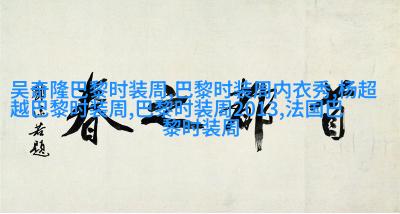 吴奇隆巴黎时装周,巴黎时装周内衣秀,杨超
越巴黎时装周,巴黎时装周2013,法国巴
黎时装周
首都之春
郭沫若题